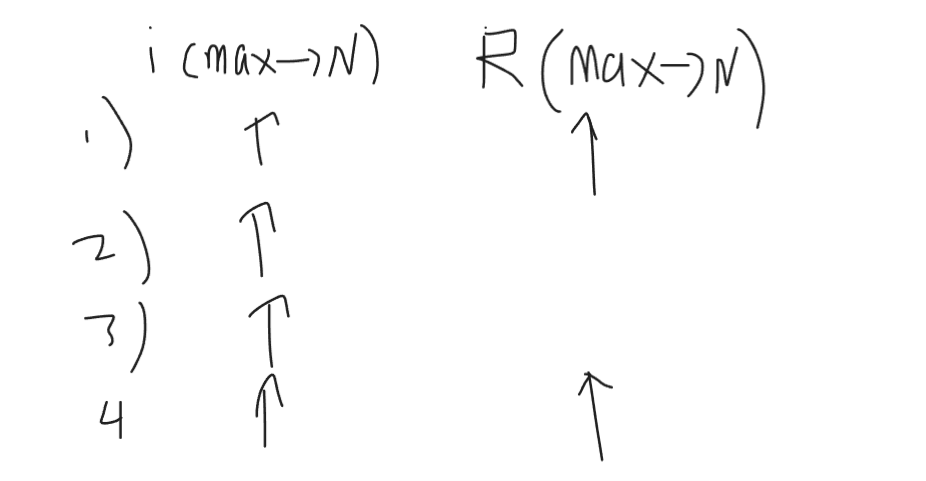 i (max→N) R (max→N)
1) ↑ ↑
2) ↑
3) ↑
4 ↑ ↑